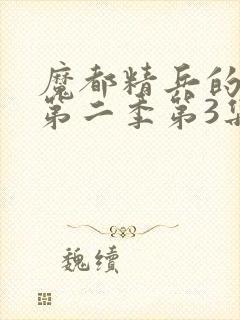 魔都精兵的
第二季第3集
魏續